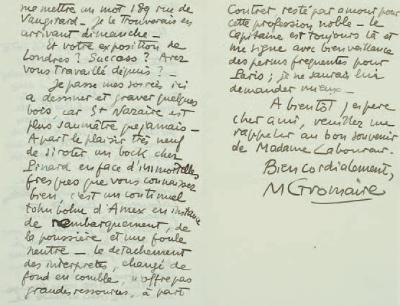 me mettre un mot 189 rue de
Vaugirard. Je le trouverais en
arrivant dimanche _
Et votre exposition de
Londres ? Success ? Avez
vous travaillé depuis ? _
Je passe mes soirées ici
à dessiner et graver quelques
bois, car St Nazaire est
plus saumâtre que jamais _
A part le plaisir très neuf
de siroter un bock chez
Pinard en face d'immortelles
fresques que vous connaissez
bien, c'est un continuel
tohu bohu d'Amex en instance
de rembarquement, de
la poussière et une foule
neutre _ le détachement
des interprètes, changé de
fond en comble, n'offre pas
grandes ressources, à part
Contret resté par amour pour
cette profession noble _ le
Capitaine est toujours là et
me ligne avec bienveillance
des perms fréquentes pour
Paris ; je ne saurais lui
demander mieux _
A bientôt j'espère
cher ami, veuillez me
rappeler au bon souvenir
de Madame Laboureur.
Bien cordialement,
M Gromaire